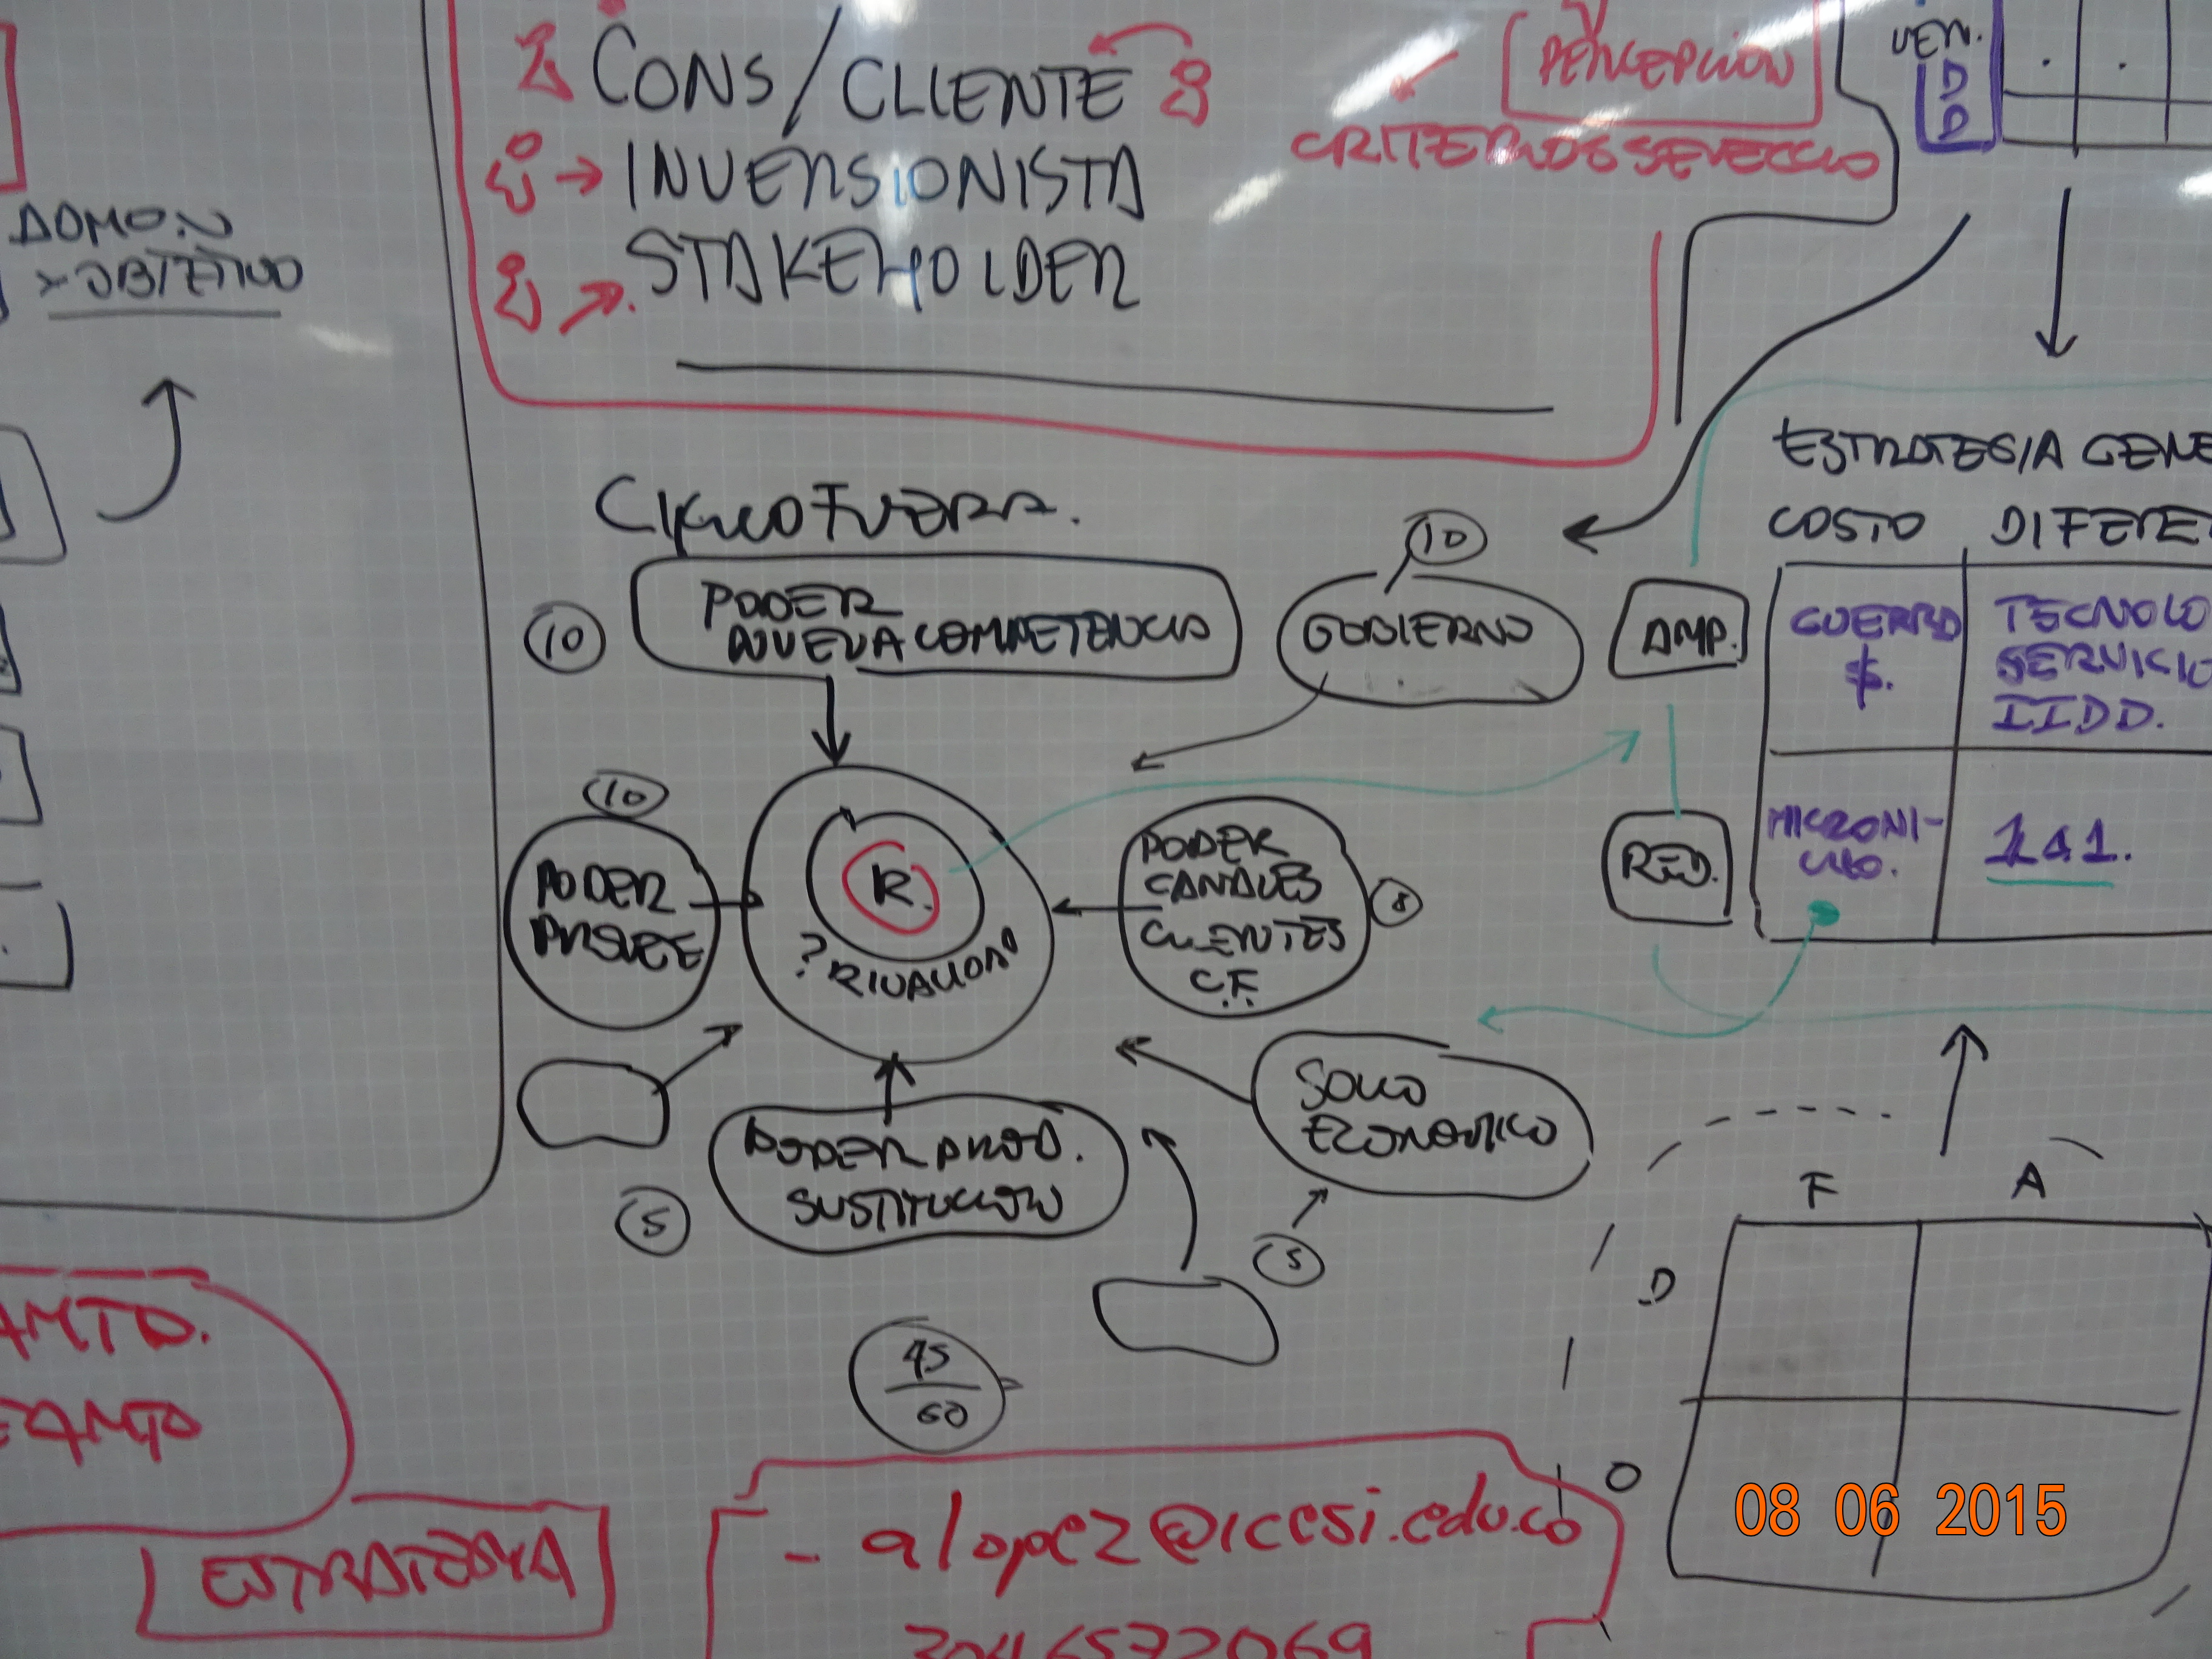 CONS/CLIENTE
INVERSIONISTA
STAKEHOLDER
PERCEPCION
CRITERIOS SELECCIO
VEN.
DOMON
OBJETIVO
ESTRATEGIA GENE
COSTO DIFERE
AMP.
GUERRA
$.
TECNOLO
SERVICIO
IIDD.
RED.
MICRONI-
CHO.
1 a 1.
FUERA.
10
PODER
NUEVA COMPETENCIA
10
GOBIERNO
10
PODER
PROVEE
R.
? RIVALIDAD
PODER
CANALES
CLIENTES
C.F.
8
SOCIO
ECONOMICO
5
PODER PROD.
SUSTITUCION
5
45
60
F A
D
O
AMTO.
EAMTO
ESTRATEGIA
- alopez@icesi.edu.co
3046572069
08 06 2015